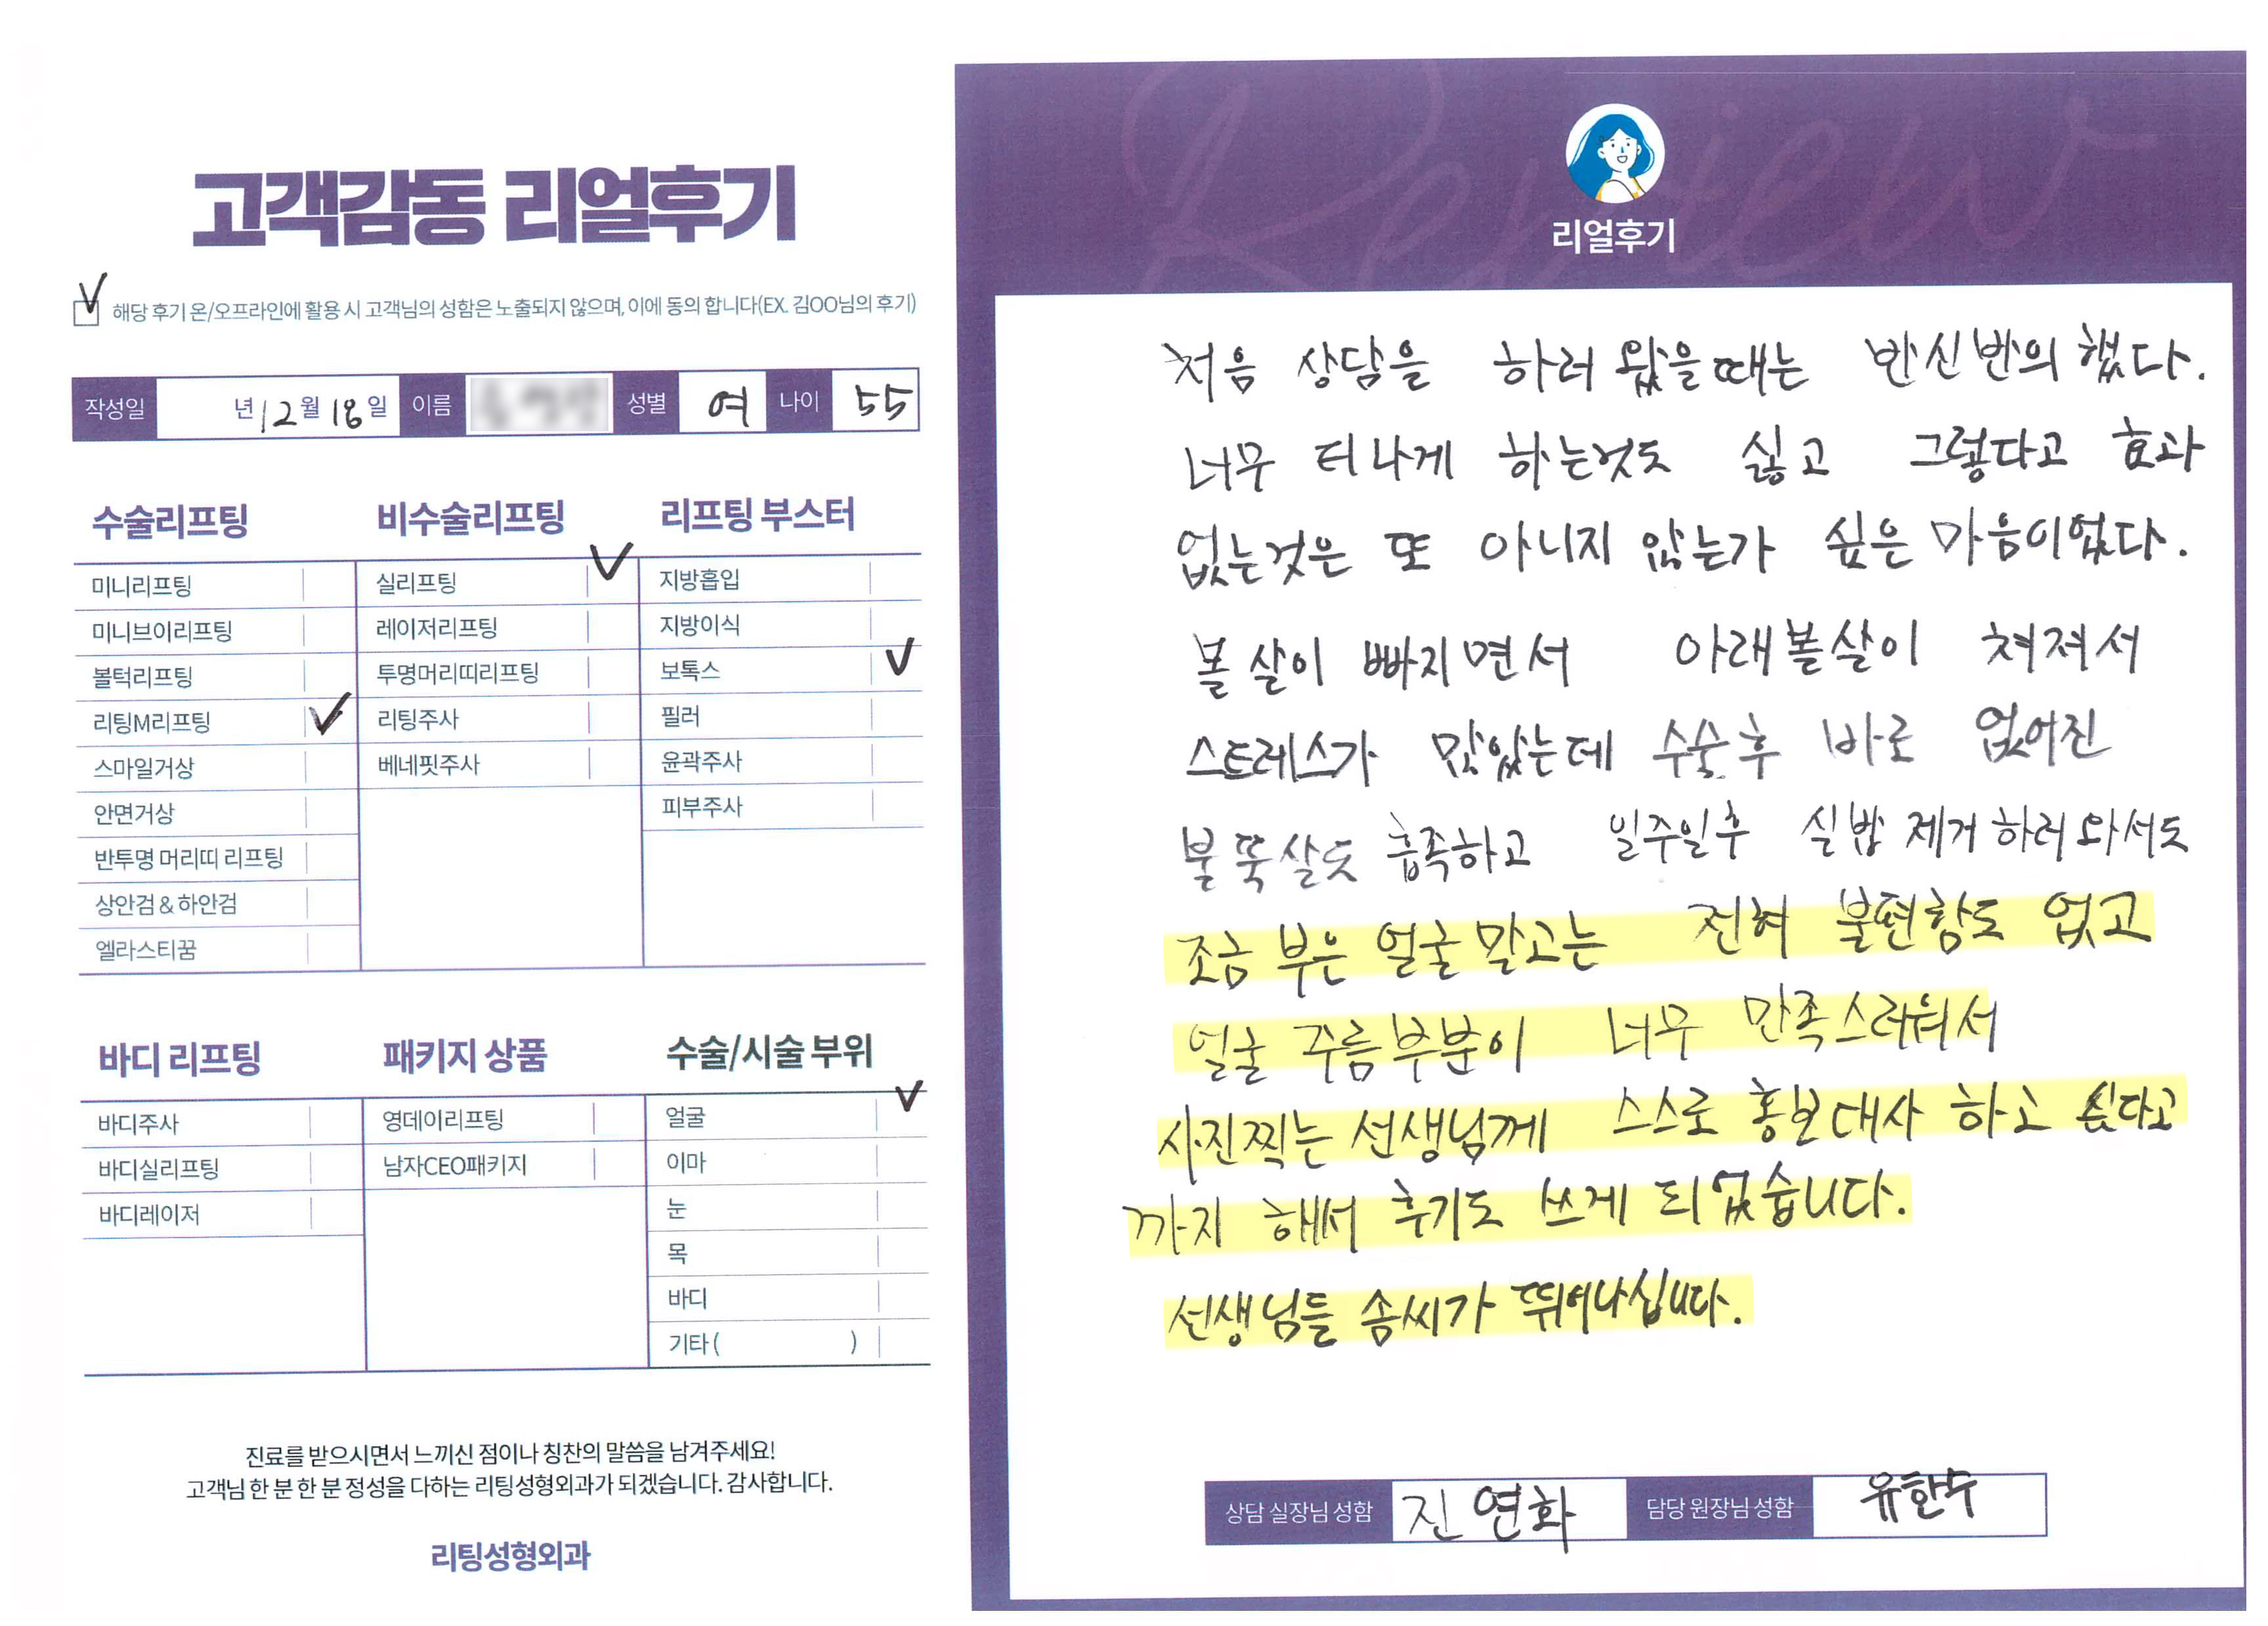 고객감동 리얼후기
해당 후기 온/오프라인에 활용 시 고객님의 성함은 노출되지 않으며, 이에 동의 합니다(EX. 김OO님의 후기)
작성일 년 12월 18일 이름 성별 여 나이 55
수술리프팅
미니리프팅
미니브이리프팅
볼턱리프팅
리팅M리프팅
스마일거상
안면거상
반투명 머리띠 리프팅
상안검 & 하안검
엘라스티꿈
비수술리프팅
실리프팅
레이저리프팅
투명머리띠리프팅
리팅주사
베네핏주사
리프팅 부스터
지방흡입
지방이식
보톡스
필러
윤곽주사
피부주사
바디 리프팅
바디주사
바디실리프팅
바디레이저
패키지 상품
영데이리프팅
남자CEO패키지
수술/시술 부위
얼굴
이마
눈
목
바디
기타 ( )
진료를 받으시면서 느끼신 점이나 칭찬의 말씀을 남겨주세요!
고객님 한 분 한 분 정성을 다하는 리팅성형외과가 되겠습니다. 감사합니다.
리팅성형외과
Review
리얼후기
처음 상담을 하러 왔을때는 반신반의 했다.
너무 티나게 하는것도 싫고 그렇다고 효과
없는것은 또 아니지 않는가 싶은 마음이었다.
볼살이 빠지면서 아래볼살이 쳐져서
스트레스가 많았는데 수술후 바로 없어진
불뚝살도 흡족하고 일주일후 실밥 제거하러 와서도
조금 부은 얼굴말고는 전혀 불편함도 없고
얼굴 주름부분이 너무 만족스러워서
사진찍는 선생님께 스스로 홍보대사 하고 싶다고
까지 해서 후기도 쓰게 되었습니다.
선생님들 솜씨가 뛰어나십니다.
상담 실장님 성함 진연화 담당 원장님 성함 유한수